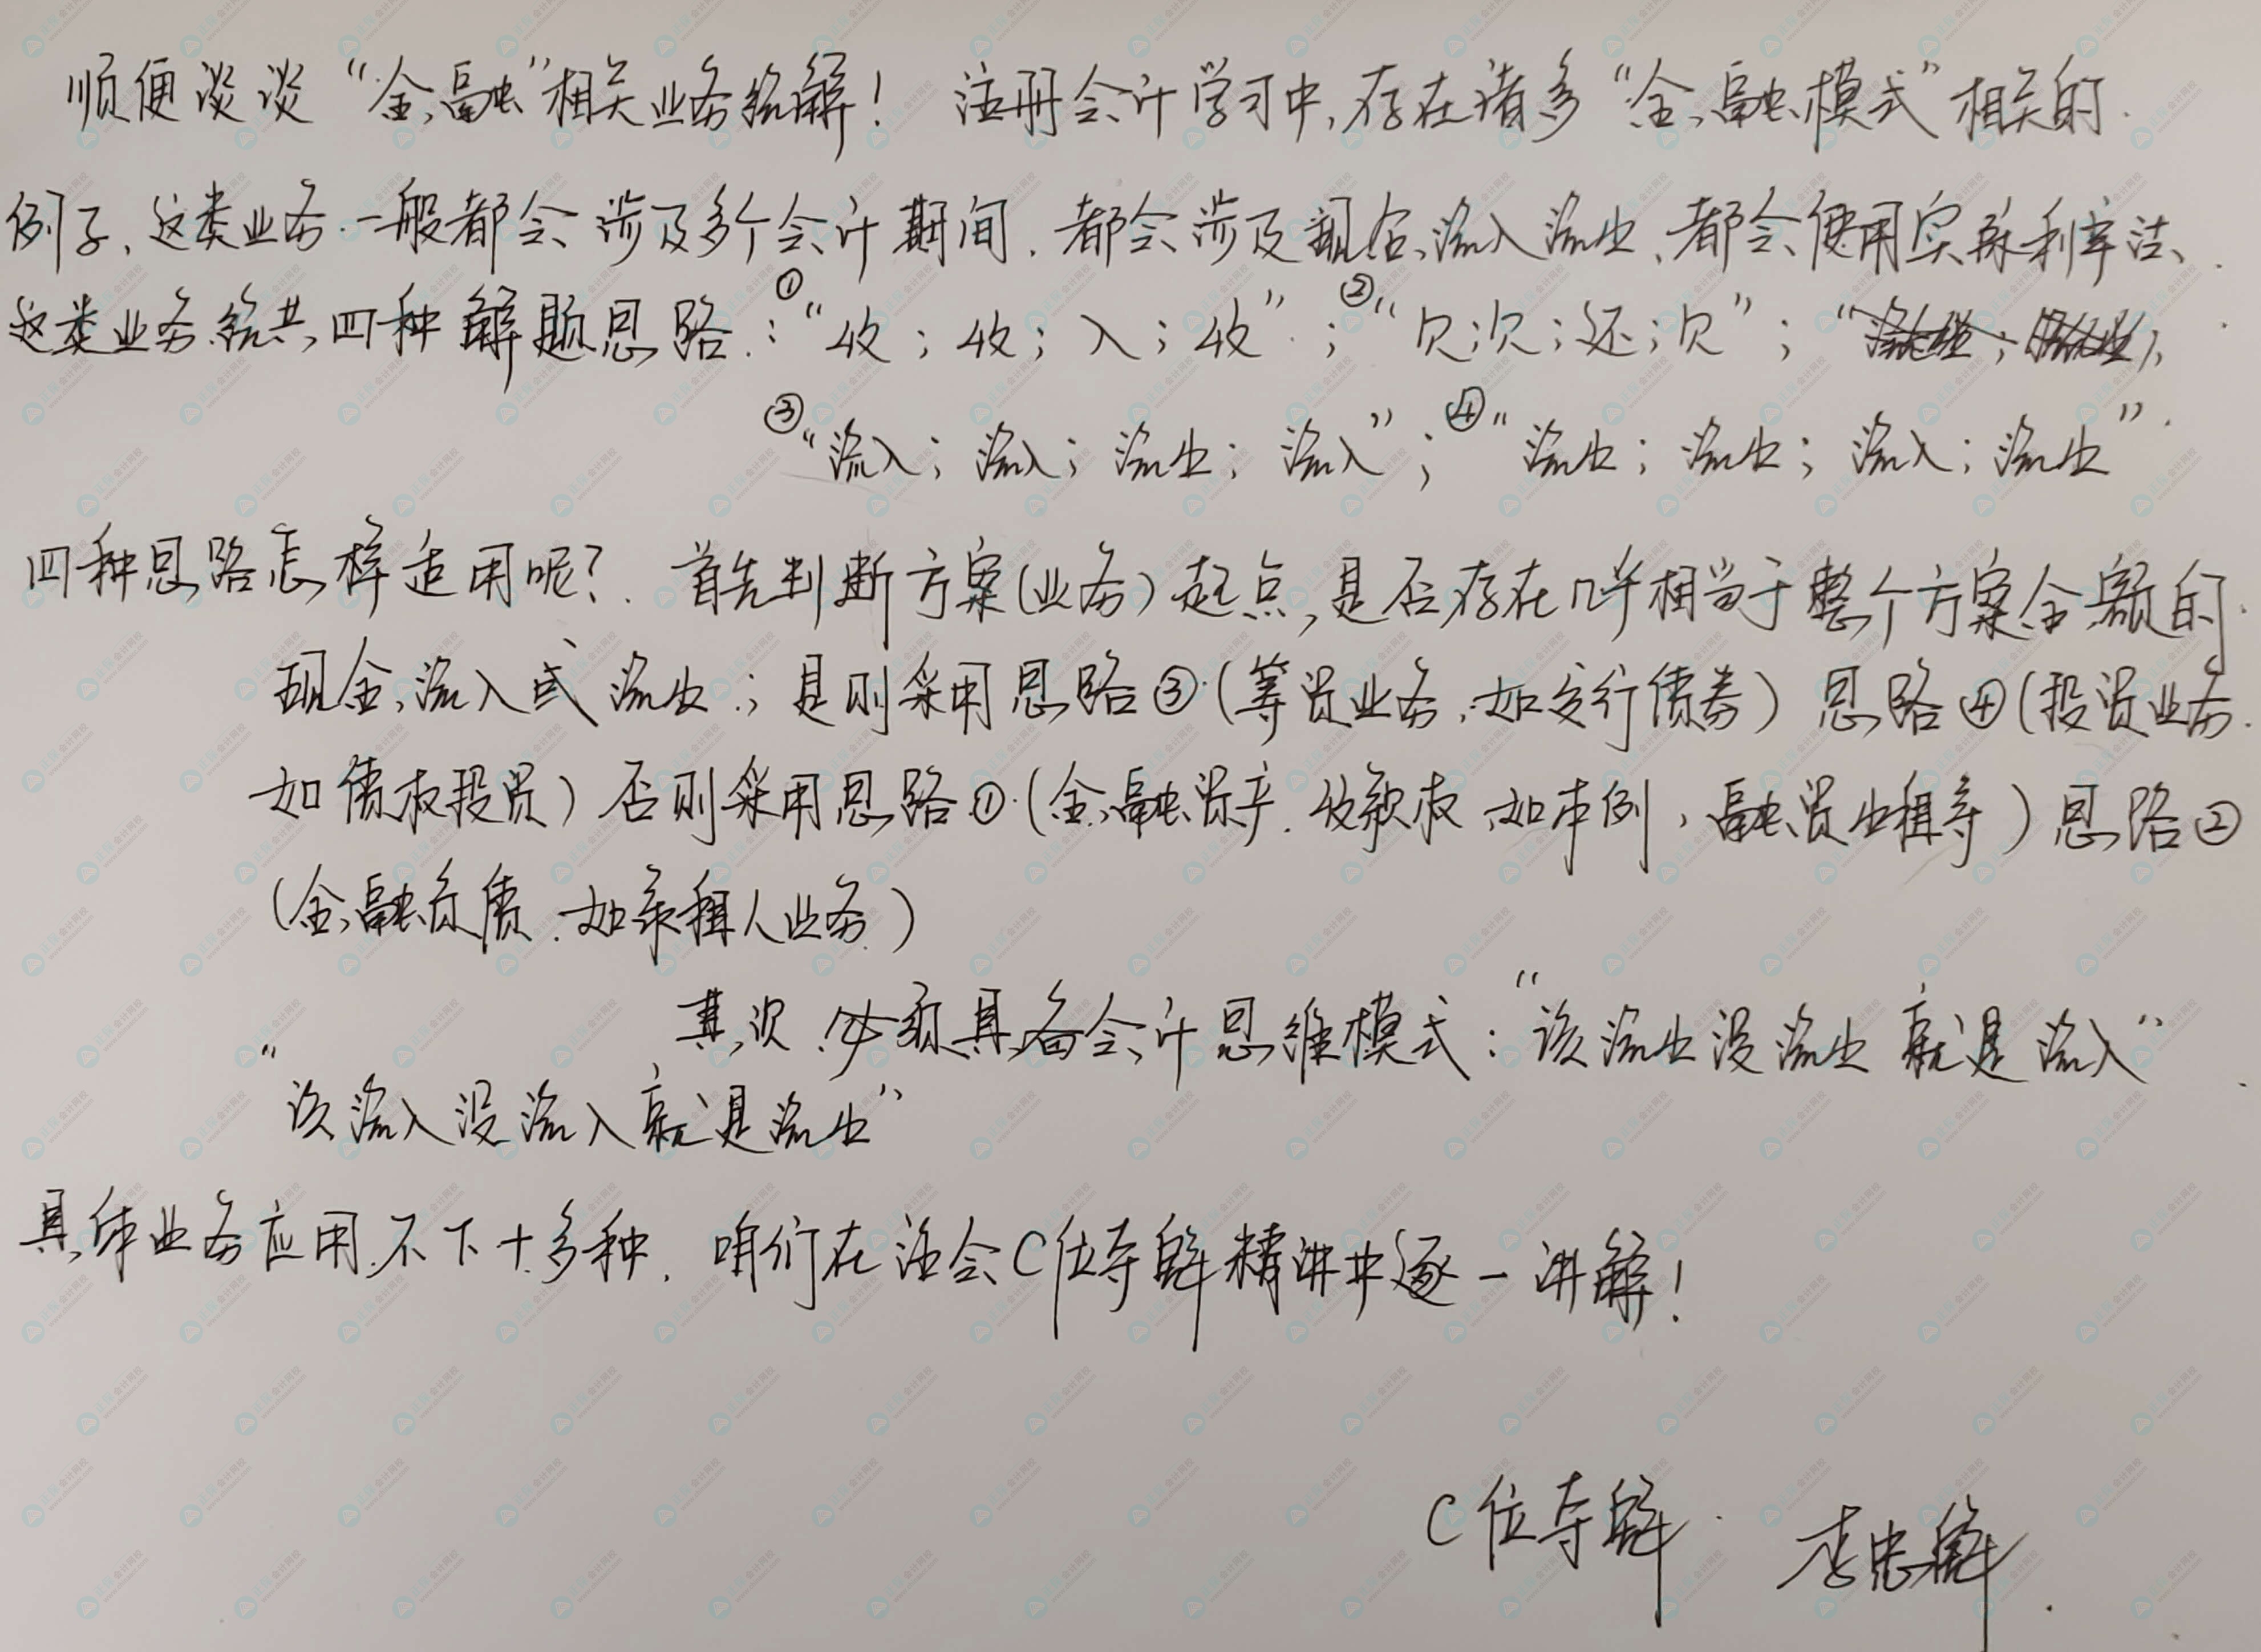 顺便谈谈“金融”相关业务统解！ 注册会计学习中，存在诸多“金融模式”相关的
例子，这类业务一般都会涉及多个会计期间，都会涉及现金流入流出，都会使用实际利率法、
这类业务统共四种解题思路：①“收；收；入；收”；②“欠；欠；还；欠”；“
③“流入；流入；流出；流入”；④“流出；流出；流入；流出”
四种思路怎样适用呢？首先判断方案（业务）起点，是否存在几乎相当于整个方案金额的
现金流入或流出；是则采用思路③（筹资业务，如发行债券）思路④（投资业务
如债权投资）否则采用思路①（金融资产、收款权，如本例，融资出租等）思路②
（金融负债，如承租人业务）
其次，必须具备会计思维模式：“该流出没流出就是流入”
“该流入没流入就是流出”
具体业务应用不下十多种，咱们在注会C位夺魁精讲中逐一讲解！
C位夺魁 李忠魁
正保会计网校